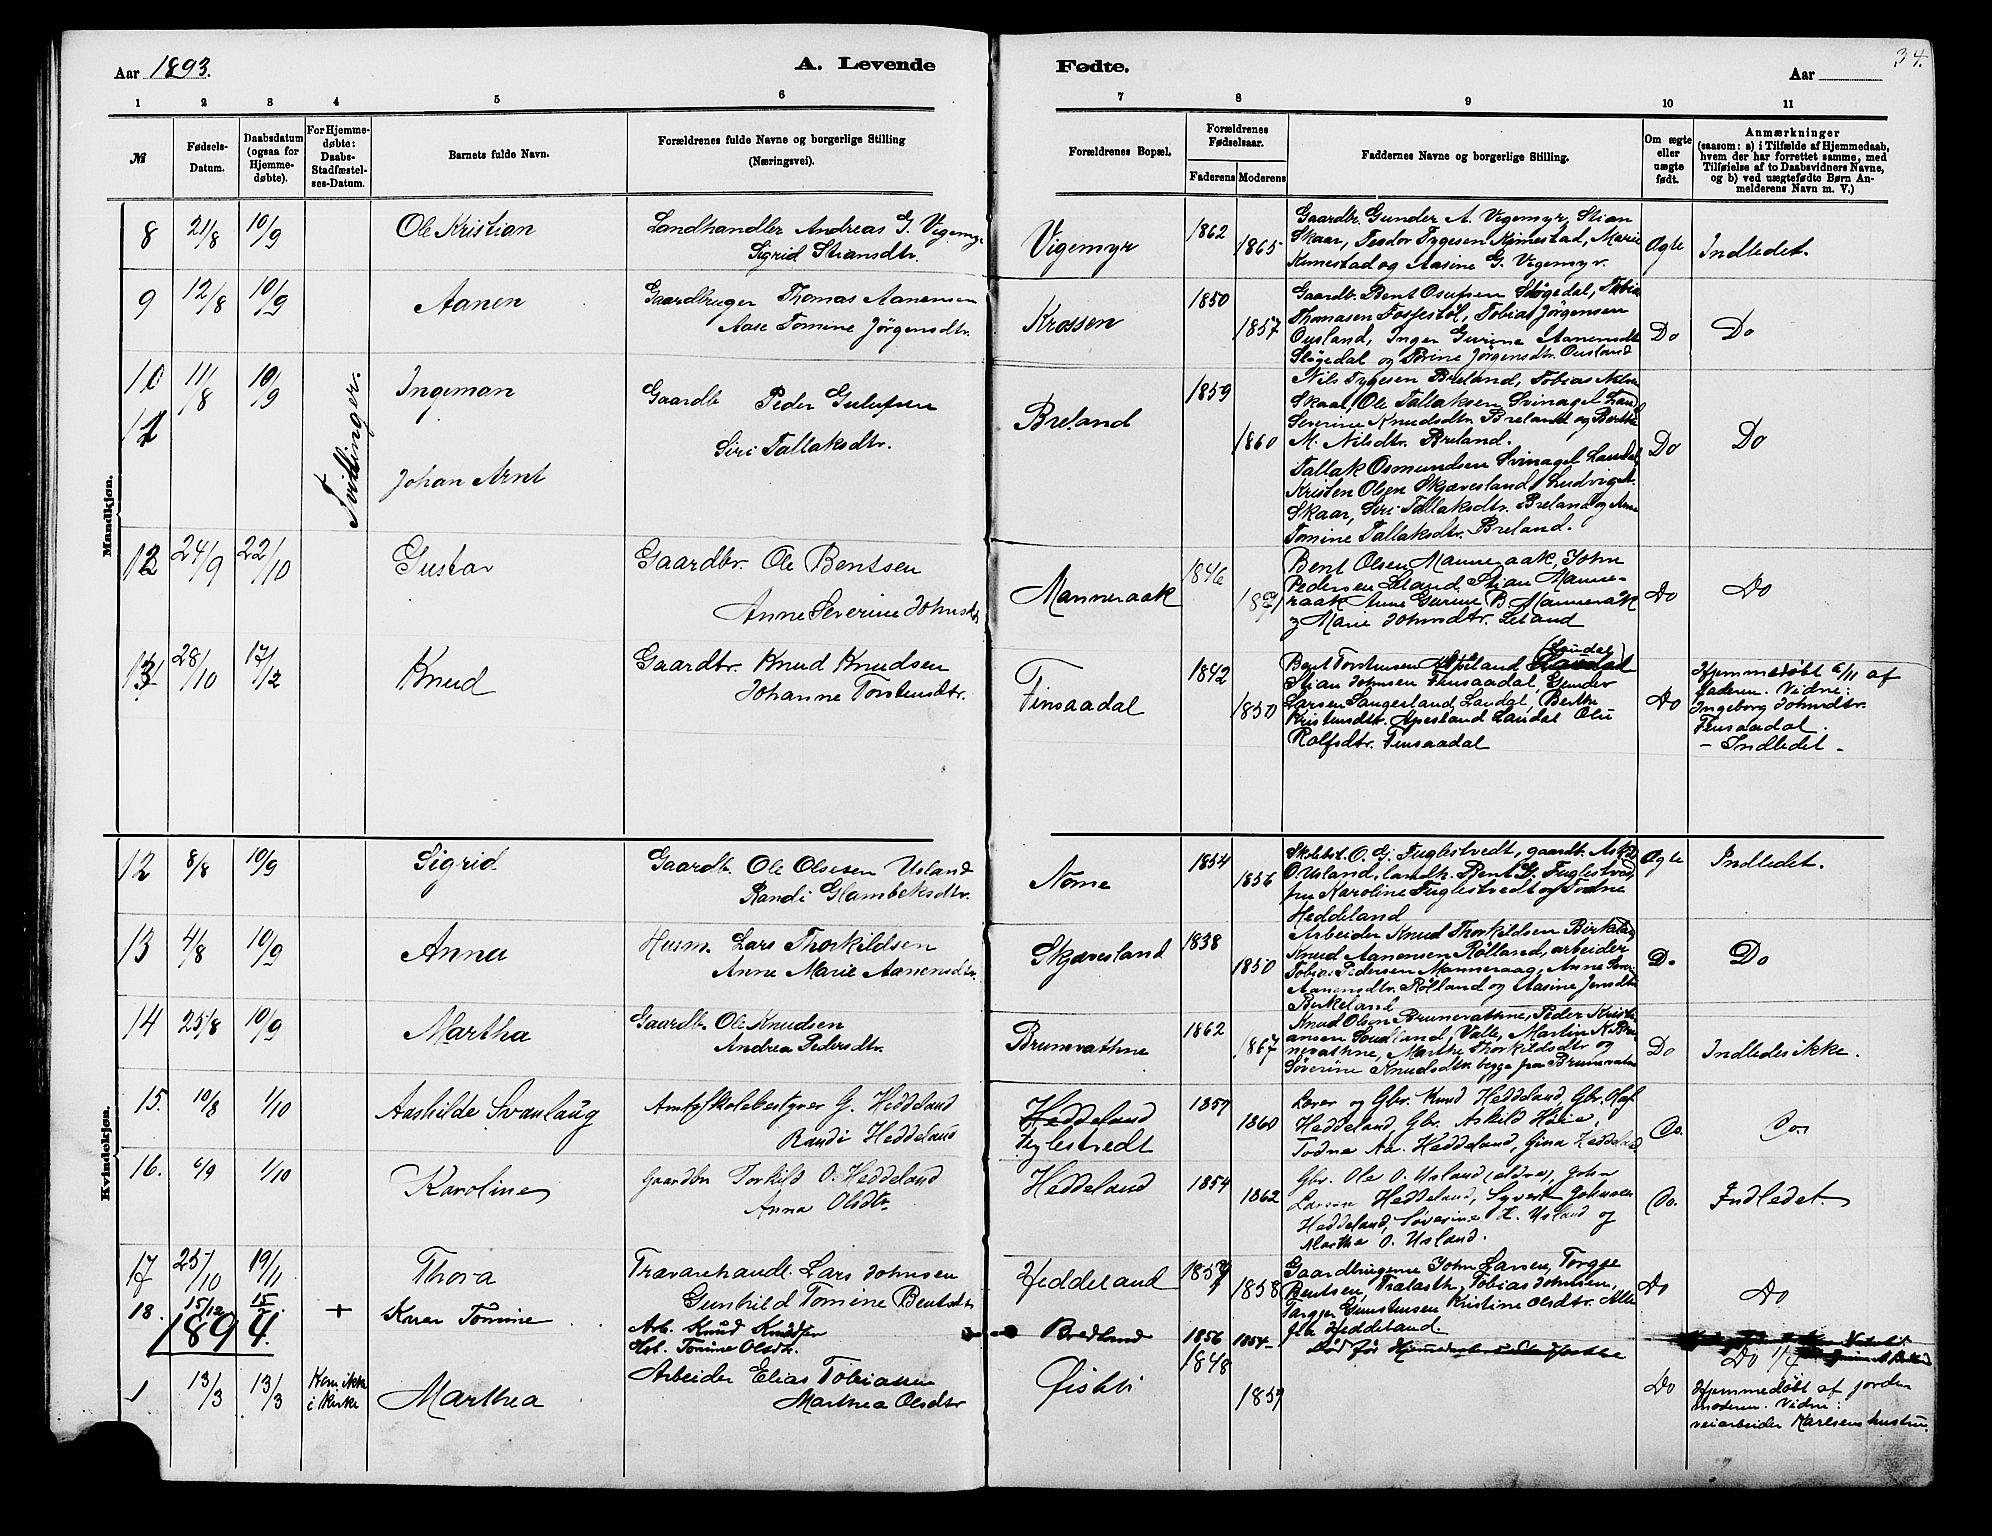 34.
Aar 1893. A. Levende Fødte. Aar
1 2 3 4 5 6 7 8 9 10 11
№ Fødsels-Datum. Daabsdatum (ogsaa for Hjemme-døbte). For Hjemme-døbte: Daabs-Stadfæstel-ses-Datum. Barnets fulde Navn. Forældrenes fulde Navne og borgerlige Stilling (Næringsvei). Forældrenes Bopæl. Forældrenes Fødselsaar. Faderens Moderens Faddernes Navne og borgerlige Stilling. Om ægte eller uægte født. Anmærkninger (saasom: a) i Tilfælde af Hjemmedaab, hvem der har forrettet samme, med Tilføielse af to Daabsvidners Navne, og b) ved uægtefødte Børn An-melderens Navn m. V.)
Mandkjøn.
8 21/8 10/9 Ole Kristian Landhandler Andreas G. Vigemyr
Sigrid Stiansdtr. Vigemyr 1862 1865
Gaardbr. Gunder A. Vigemyr, Stian
Skaar, Teodor Tygesen Kimestad, Marie
Kimestad og Aasine G. Vigemyr. Ægte Indledet.
9 12/8 10/9 Aanen Gaardbruger Thomas Aanensen
Aase Tomine Jørgensdtr. Krossen 1850 1857
Gaardb. Bent Osufsen Sløgedal, Tobias
Thomasen Fossestøl, Tobias Jørgensen
Ousland, Inger Gurine Aanensdtr
Sløgedal og Trine Jørgensdtr. Ousland Do Do
10 11/8 10/9 Tvillinger. Ingeman Gaardb Peder Gulufsen
Siri Tallaksdtr. Breland 1859 1860
Nils Tygesen Breland, Tobias Nilsen
Skaar, Ole Tallaksen Svinagel Laud.
Severine Knudsdtr. Breland og Berthe
M. Nilsdtr. Breland. Do Do
11 Johan Arnt
Tallak Osmundsen Svinagel Laudal
Kristen Olsen Skjævesland, Ludvig A.
Skaar, Siri Tallaksdtr. Breland og Anne
Tomine Tallaksdtr. Breland.
12 24/9 22/10 Gustav Gaardbr. Ole Bentsen
Anne Severine Johnsdtr Manneraak 1846
Bent Olsen Manneraak, John
Pedersen Leland Stian Manne-
raak Anne Gurine B Manneraak
og Marie Johnsdtr. Leland Do Do
13 28/10 17/12 Knud Gaardbr. Knud Knudsen
Johanne Torstensdtr. Finsaadal 1842 1850
Bent Torstensen Apesland (Laudal)
Stian Johnsen Finsaadal, Gunder
Larsen Laugesland, Laudal, Berthe
Kristensdtr. Apesland Laudal Olu
Rolfsdtr. Finsaadal Do
Hjemmedøbt 6/11 af
faderen. Vidne:
Ingeborg Johnsdtr.
Finsaadal.
– Indledet –
Kvindekjøn.
12 8/8 10/9 Sigrid Gaardb. Ole Olsen Usland
Randi Glambeksdtr. Nome 1854 1856
Skolebst. O. G. Fuglestvedt, gaardb. Askd
O. Usland, landh. Bent G. Fuglestved
fru Karoline Fuglestvedt og Todne
Heddeland Ægte Indledet.
13 4/8 10/9 Anna Husm. Lars Thorkildsen
Anne Marie Aanensdtr Skjævesland 1838 1850
Arbeider Knud Thorkildsen Birkeland
Knud Aanensen Rølland, arbeider
Tobias Pedersen Manneraag, Anne Sev.
Aanensdtr. Rølland og Aasine Jensdtr
Birkeland Do Do
14 25/8 10/9 Martha Gaardb. Ole Knudsen
Andrea Pedersdtr. Brunvathne 1862 1867
Knud Olsen Brunvathne, Peder Kristi-
ansen Soudland, Valle, Martin K. Bru-
nevathne, Marthe Thorkildsdtr og
Søverine Knudsdtr. begge fra Brunvatne Do Indledes ikke.
15. 10/8 1/10 Aashilde Svanlaug Amtsskolebestyrer G. Heddeland
Randi Heddeland Heddeland
Fuglestvedt 1857 1860
Lærer og Gbr. Knud Heddeland, Gbr. Olaf
Heddeland, Gbr. Askild Høie,
Todne Aa. Heddeland, Gina Heddeland Do. Do.
16. 6/9 1/10 Karoline Gaardbr Torkild O. Heddeland
Anna Olsdtr. Heddeland 1854 1862
Gbr. Ole O. Usland (ældre), John
Larsen Heddeland, Syvert Johnsen
Heddeland, Søverine K. Usland og
Martha O. Usland. Do. Indledet.
17 25/10 19/11 Thora Trævarehandl. Lars Johnsen
Gunhild Tomine Bentsdtr Heddeland 1857 1858
Gaardbrugerne John Larsen, Torgje
Bentsen, Tralasth. Tobias Johnsen,
Targjer Gunstensen Kristine Olsdtr. Alle
fra Heddeland. Do Do
18. 15/12 15 + Karen Tomine Arb. Knud Knudsen
Hst. Tomine Olsdtr. Bredland 1856 1854
Død før
1894.
1 13/3 13/3 Kom ikke
i kirke Marthea Arbeider Elias Tobiassen
Marthea Olsdtr Øistbi 1848 1859 Do
Do 1/4
Hjemmedøbt af jorde-
moderen. Vidne:
veiarbeider Karlsens hustru.